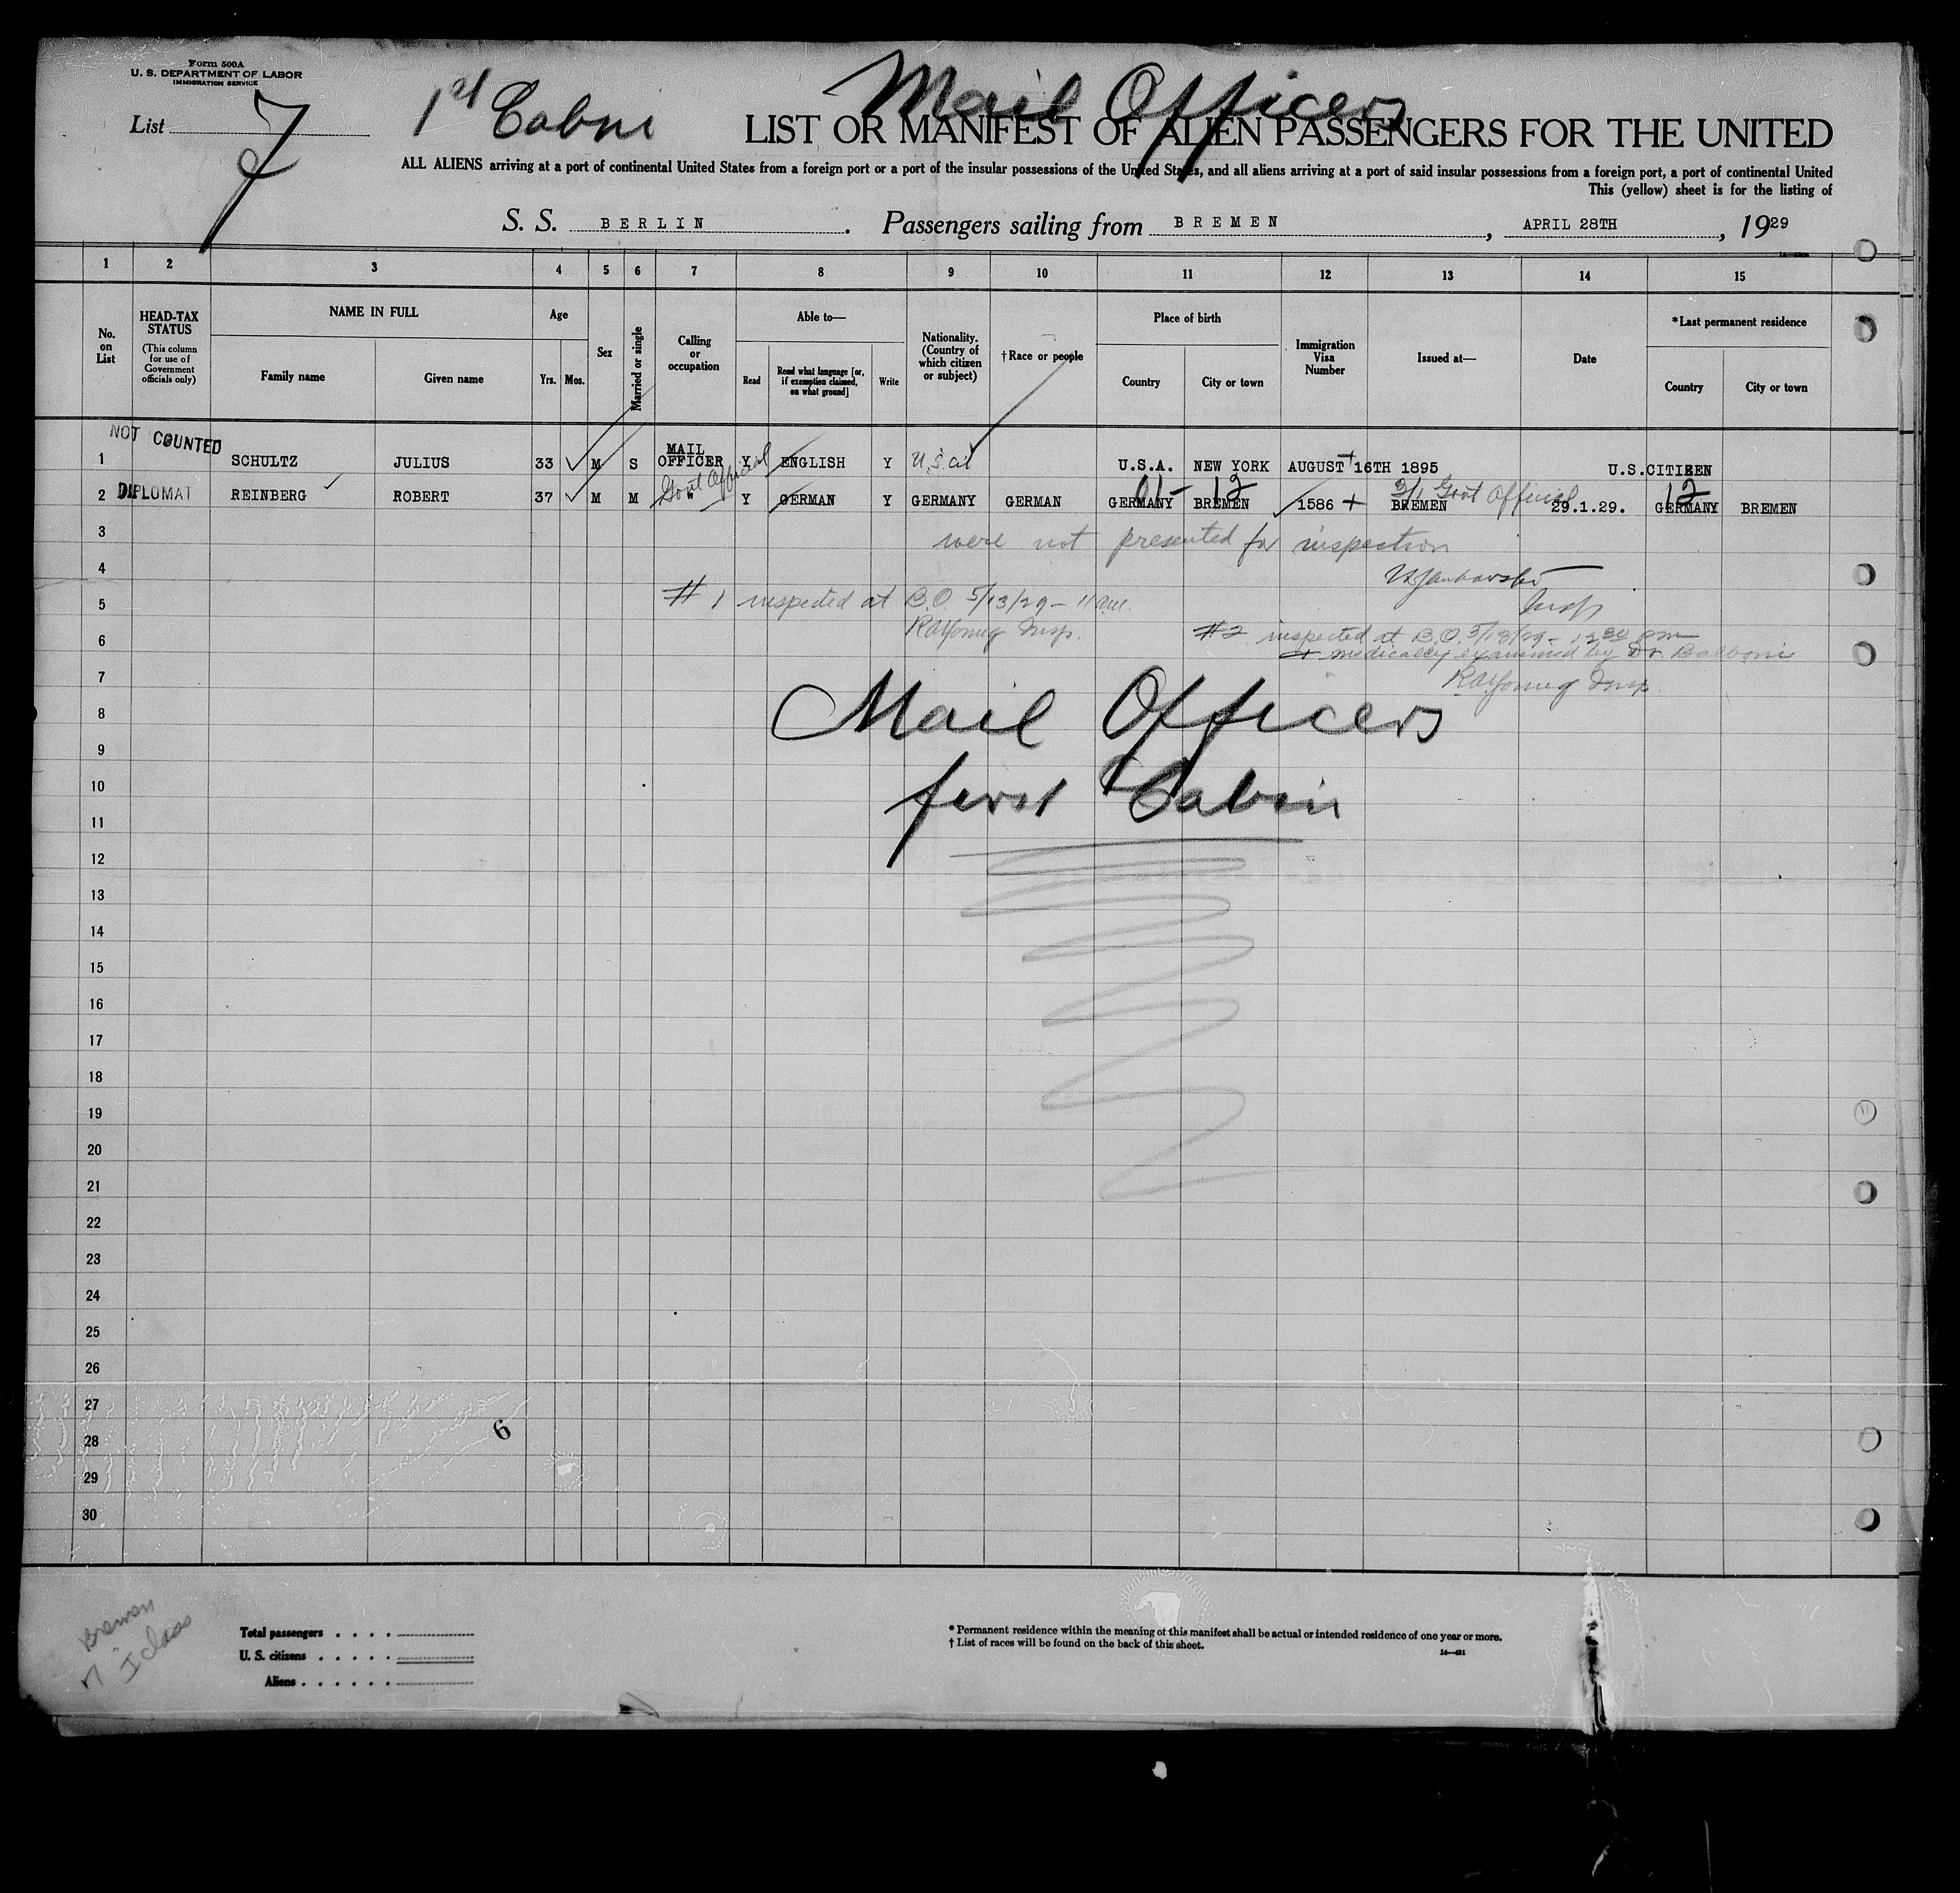 Form 500A
U. S. DEPARTMENT OF LABOR
IMMIGRATION SERVICE
List 7
1st Cabin
Mail Officers
LIST OR MANIFEST OF ALIEN PASSENGERS FOR THE UNITED
ALL ALIENS arriving at a port of continental United States from a foreign port or a port of the insular possessions of the United States, and all aliens arriving at a port of said insular possessions from a foreign port, a port of continental United
This (yellow) sheet is for the listing of
S. S. BERLIN. Passengers sailing from BREMEN, APRIL 28TH, 1929
1 2 3 4 5 6 7 8 9 10 11 12 13 14 15
No. on List
HEAD-TAX STATUS (This column for use of Government officials only)
NAME IN FULL
Family name
Given name
Age
Yrs.
Mos.
Sex
Married or single
Calling or occupation
Able to—
Read
Read what language [or, if exemption claimed, on what ground]
Write
Nationality. (Country of which citizen or subject)
†Race or people
Place of birth
Country
City or town
Immigration Visa Number
Issued at—
Date
*Last permanent residence
Country
City or town
NOT COUNTED
1 SCHULTZ JULIUS 33 M S MAIL OFFICER Y ENGLISH Y U.S. cit U.S.A. NEW YORK AUGUST 16TH 1895 U.S.CITIZEN
Govt Official
01- 12 3/1 Govt Official 12
2 DIPLOMAT REINBERG ROBERT 37 M M " Y GERMAN Y GERMANY GERMAN GERMANY BREMEN 1586 + BREMEN 29.1.29. GERMANY BREMEN
3 were not presented for inspection
4
Insp
5 # 1 inspected at B.O. 5/13/29 - 11 am.
RAYoung Insp.
6 #2 inspected at B.O. 5/13/29 - 12 30 pm
+ medically examined by Dr. Balboni
7 RAYoung Insp
8 Mail Officers
9
10 first Cabin
11
12
13
14
15
16
17
18
19
20
21
22
23
24
25
26
27
6
28
29
30
Bremen
I class
Total passengers
U. S. citizens
Aliens
* Permanent residence within the meaning of this manifest shall be actual or intended residence of one year or more.
† List of races will be found on the back of this sheet.